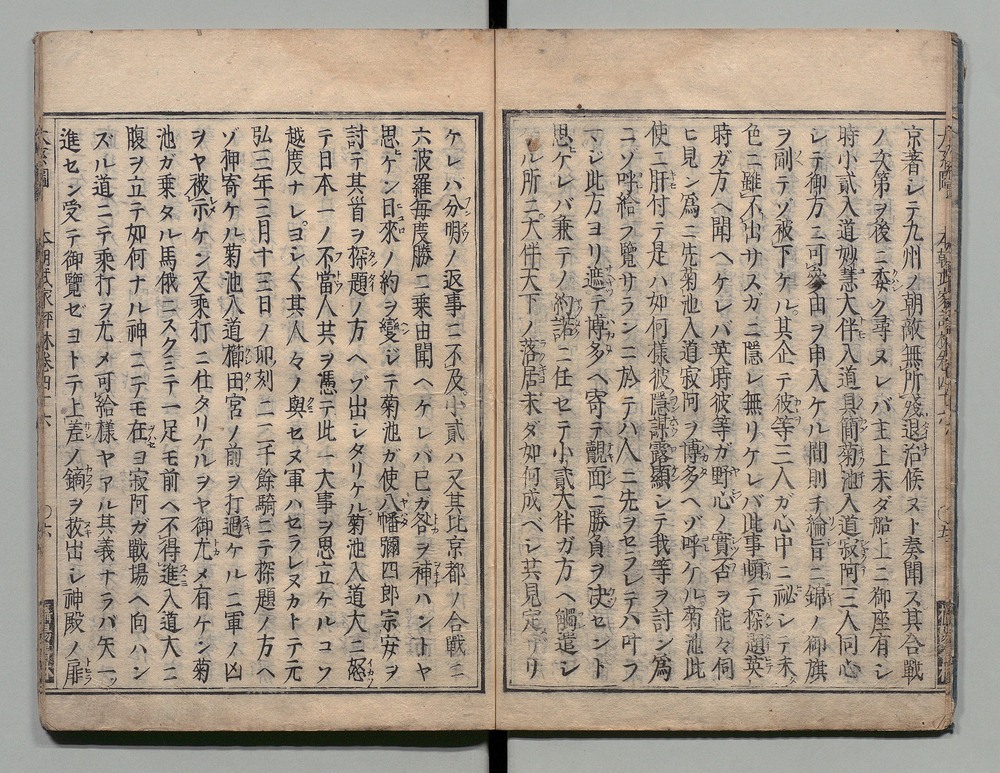 京著シテ九州ノ朝敵無所殘退治候ヌト奏聞ス其合戰
ノ次第ヲ後ニ委ク尋ヌレバ主上未ダ船上ニ御座有シ
時小貳入道妙慧大伴入道具簡菊池入道寂阿三人同心
シテ御方ニ可參由ヲ申入ケル間則チ綸旨ニ錦ノ御旗
ヲ副テゾ被下ケル其企テ彼等三人ガ心中ニ祕シテ未
色ニ雖不出サスガニ隱レ無リケレバ此事頓テ探題英
時ガ方ヘ聞ヘケレバ英時彼等ガ野心ノ實否ヲ能々伺
ヒ見ン爲ニ先菊池入道寂阿ヲ博多ヘゾ呼ケル菊池此
使ニ肝付テ是ハ如何樣彼隱謀露顯シテ我等ヲ討ン爲
ニゾ呼給フ覽サランニ於テハ人ニ先ヲセラレテハ叶フ
マジ此方ヨリ遮テ博多ヘ寄テ覿面ニ勝負ヲ決セント
思ケレバ兼テノ約諾ニ任セテ小貳大伴ガ方ヘ觸遣シ
ケル所ニ大伴天下ノ落居未ダ如何成ベシ共見定ザリ
ケレハ分明ノ返事ニ不及小貳ハ又其比京都ノ合戰ニ
六波羅毎度勝ニ乘由聞ヘケレバ已ガ咎ヲ補ハントヤ
思ケン日來ノ約ヲ變ジテ菊池ガ使八幡彌四郎宗安ヲ
討テ其首ヲ探題ノ方ヘゾ出シタリケル菊池入道大ニ怒
テ日本一ノ不當人共ヲ憑テ此一大事ヲ思立ケルコソ
越度ナレヨシ〳〵其人々ノ與セヌ軍ハセラレヌカトテ元
弘三年三月十三日ノ卯刻ニ二千餘騎ニテ探題ノ方ヘ
ゾ押寄ケル菊池入道櫛田宮ノ前ヲ打過ケルニ軍ノ凶
ヲヤ被示ケン又乘打ニ仕タリケルヲヤ御尤メ有ケン菊
池ガ乘タル馬俄ニスクミテ一足モ前ヘ不得進入道大ニ
腹ヲ立テ如何ナル神ニテモ在ヨ寂阿ガ戰場ヘ向ハン
ズル道ニテ乘打ヲ尤メ可給樣ヤアル其義ナラバ矢一ツ
進セン受テ御覽ゼヨトテ上差ノ鏑ヲ抜出シ神殿ノ扉
本朝武家評林卷四十六
〇六